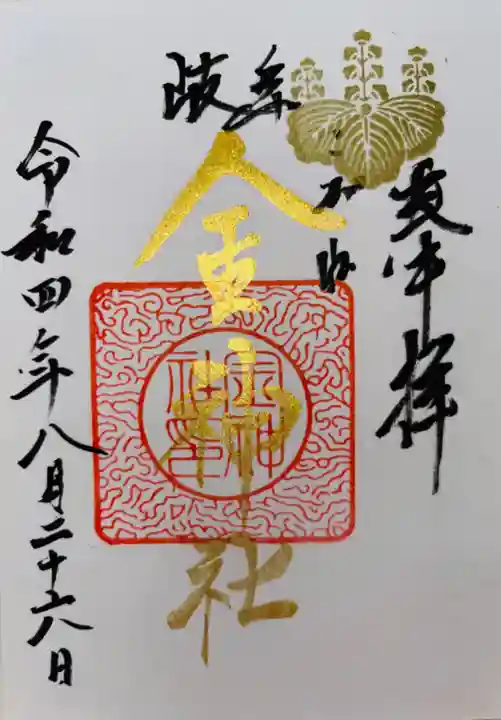 奉拝
岐阜
金神社
金神社印
令和四年八月二十六日